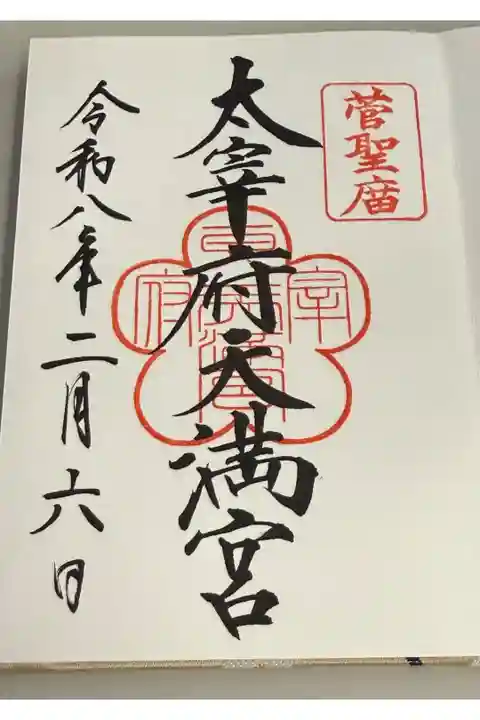 菅聖庿
太宰府天満宮
令和八年二月六日